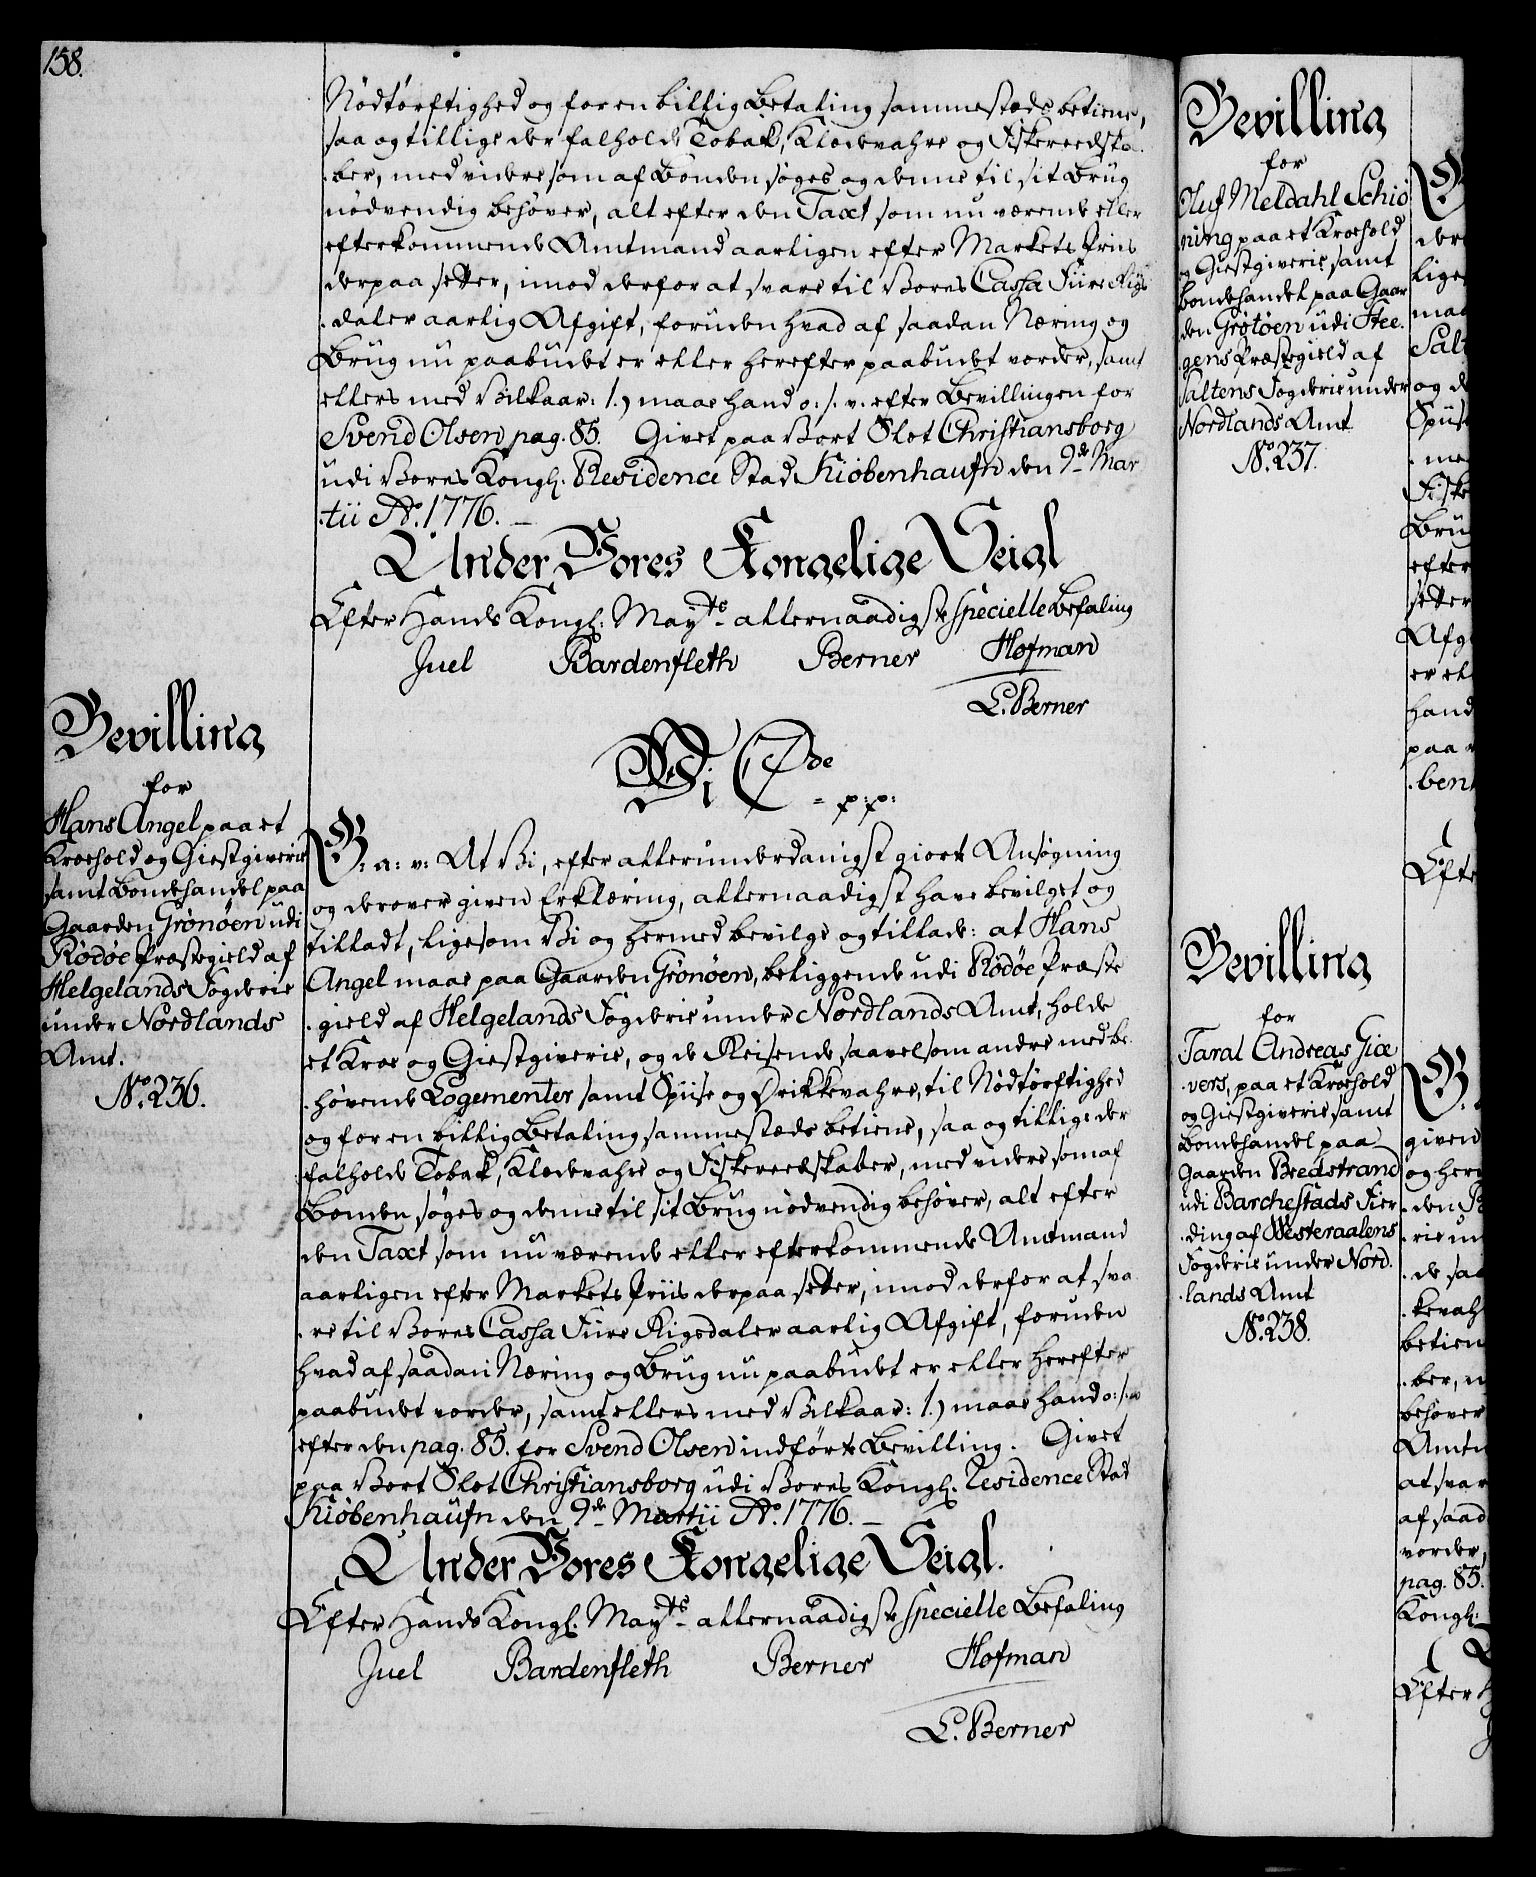 158.
Nödtörftighed og for en billig Betaling sammestæds betiene,
saa og tillige der falholde Tobak, Klædevahre og Fiskereedska
ber, med videre som af Bonden søges og denne til sit Brug
nödvendig behöver, alt efter den Taxt som nu værende eller
efterkommende Amtmand aarligen efter Markets Priis
derpaa setter, imod derfor at svare til Vores Cassa Fiire Rigs
daler aarlig Afgift, foruden hvad af saadan Næring og
Brug nu paabudet er eller herefter paabudet vorder, samt
ellers med Vilkaar: 1.) maae hand o: s: v: efter Bevillingen for
Svend Olsen pag. 85. Givet paa Vort Slot Christiansborg
udi Vores Kongl. Residence Stad Kiöbenhaufn den 9de Mar
tii Ao. 1776. —
Under Vores Kongelige Seigl
Efter Hands Kongl: Mayts allernaadigste specielle Befaling
Juel Bardenfleth Berner Hofman
L. Berner
Bevilling
for
Hans Angel paa et
Kroehold og Giestgiverie
samt Bondehandel paa
Gaarden Grönöen udi
Rödöe Præstegield af
Helgelands Fogderie
under Nordlands
Amt.
No. 236.
Vi C 7de
= p: p:
G: a: v: At Vi, efter allerunderdanigst giort Ansögning
og derover given Erklæring, allernaadigst have bevilget og
tilladt, ligesom Vi og hermed bevilge og tillade: at Hans
Angel maae paa Gaarden Grönöen, beliggende udi Rödöe Præste
gield af Helgelands Fogderie under Nordlands Amt, holde
et Kroe og Giestgiverie, og de Reisende saavelsom andre med be
hövende Logementer samt Spiise og Drikkevahre, til Nödtörftighed
og for en billig Betaling sammestæds betiene, saa og tillige der
falholde Tobak, Klædevahre og Fiskereedskaber, med videre som af
Bonden söges og denne til sit Brug nödvendig behöver, alt efter
den Taxt som nu værende eller efterkommende Amtmand
aarligen efter Markets Priis derpaa setter, imod derfor at sva
re til Vores Cassa Fiire Rigsdaler aarlig Afgift, foruden
hvad af saadan Næring og Brug nu paabudet er eller herefter
paabudet vorder, samt ellers med Vilkaar: 1.) maae hand o: s: v:
efter den pag. 85. for Svend Olsen indförte Bevilling. Givet
paa Vort Slot Christiansborg udi Vores Kongl. Residence Stad
Kiöbenhaufn den 9de Martii Ao. 1776. —
Under Vores Kongelige Seigl.
Efter Hands Kongl: Mayts allernaadigste specielle Befaling
Juel Bardenfleth Berner Hofman
L. Berner
Bevilling
for
Oluf Meldahl Schiö
ning paa et Kroehold
og Giestgiverie samt
Bondehandel paa Gaar
den Grötöen udi Stee
gens Præstegield af
Saltens Fogderie under
Nordlands Amt
No. 237.
Bevilling
for
Taral Andreas Giæ
vers, paa et Kroehold
og Giestgiverie samt
Bondehandel paa
Gaarden Bredstrand
udi Barchestads Fier
ding af Westeraalens
Fogderie under Nord
lands Amt
No. 238.
G
der
lige
maa
Salt
og d
Spiise
me
Fiske
Brug
efter
setter
Afg
er el
hand
paa
ben
Efte
G:
given
og her
den B
rie un
de saa
kevah
betien
ber, m
behöver
Amtm
at svar
af saad
vorder,
pag. 85.
Kongl:
Efter H